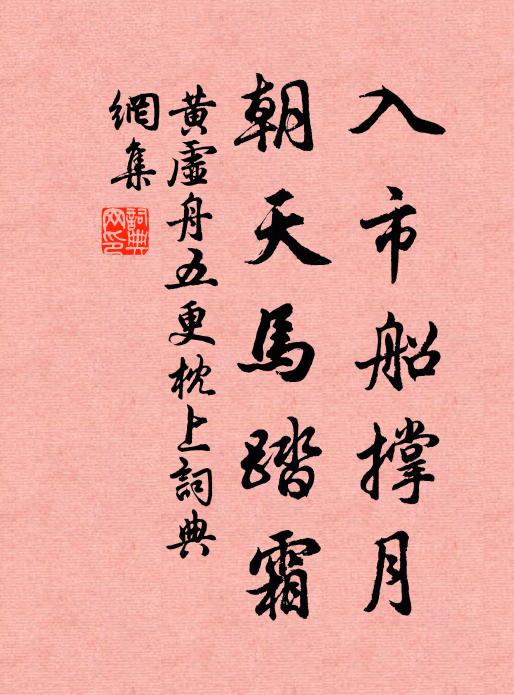 入市船撐月
朝天馬踏霜
黃虛舟五更枕上詞典
網集
詞典網印